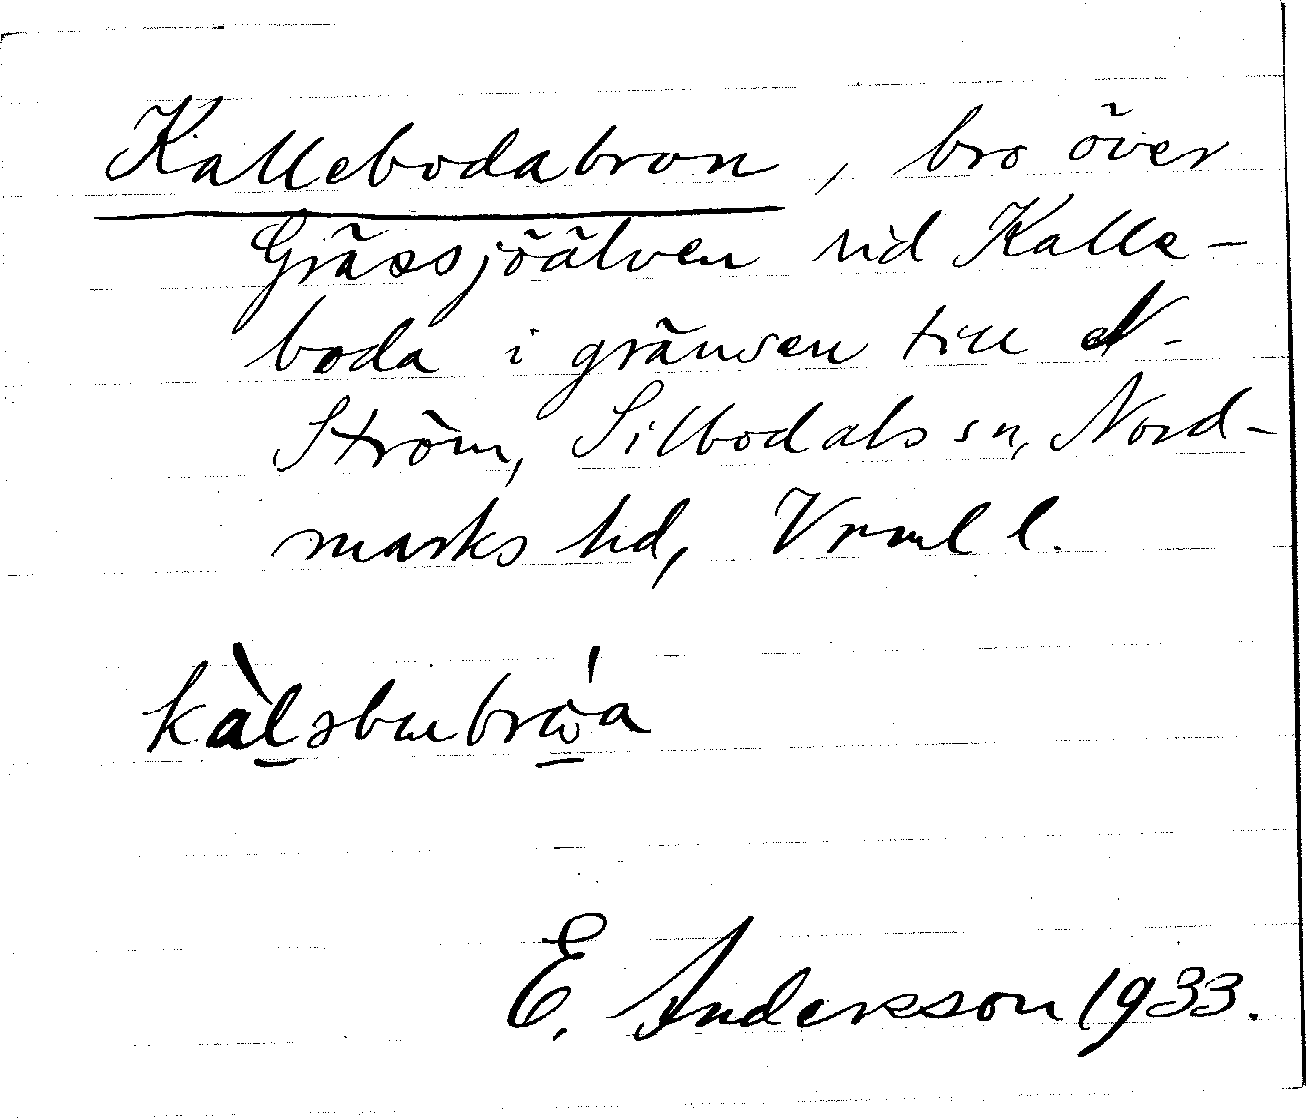 Kallebodabron, bro över
Grässjöälven vid Kalle-
boda i gränsen till N.
Ström, Silbodals sn, Nord-
marks hd, Vrml l.
kàləbubrὼ́a
E. Andersson 1933.